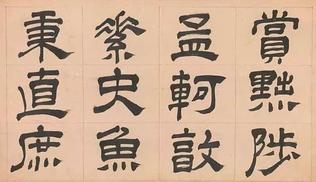 賞黜陟
孟軻敦
素史魚
秉直庶